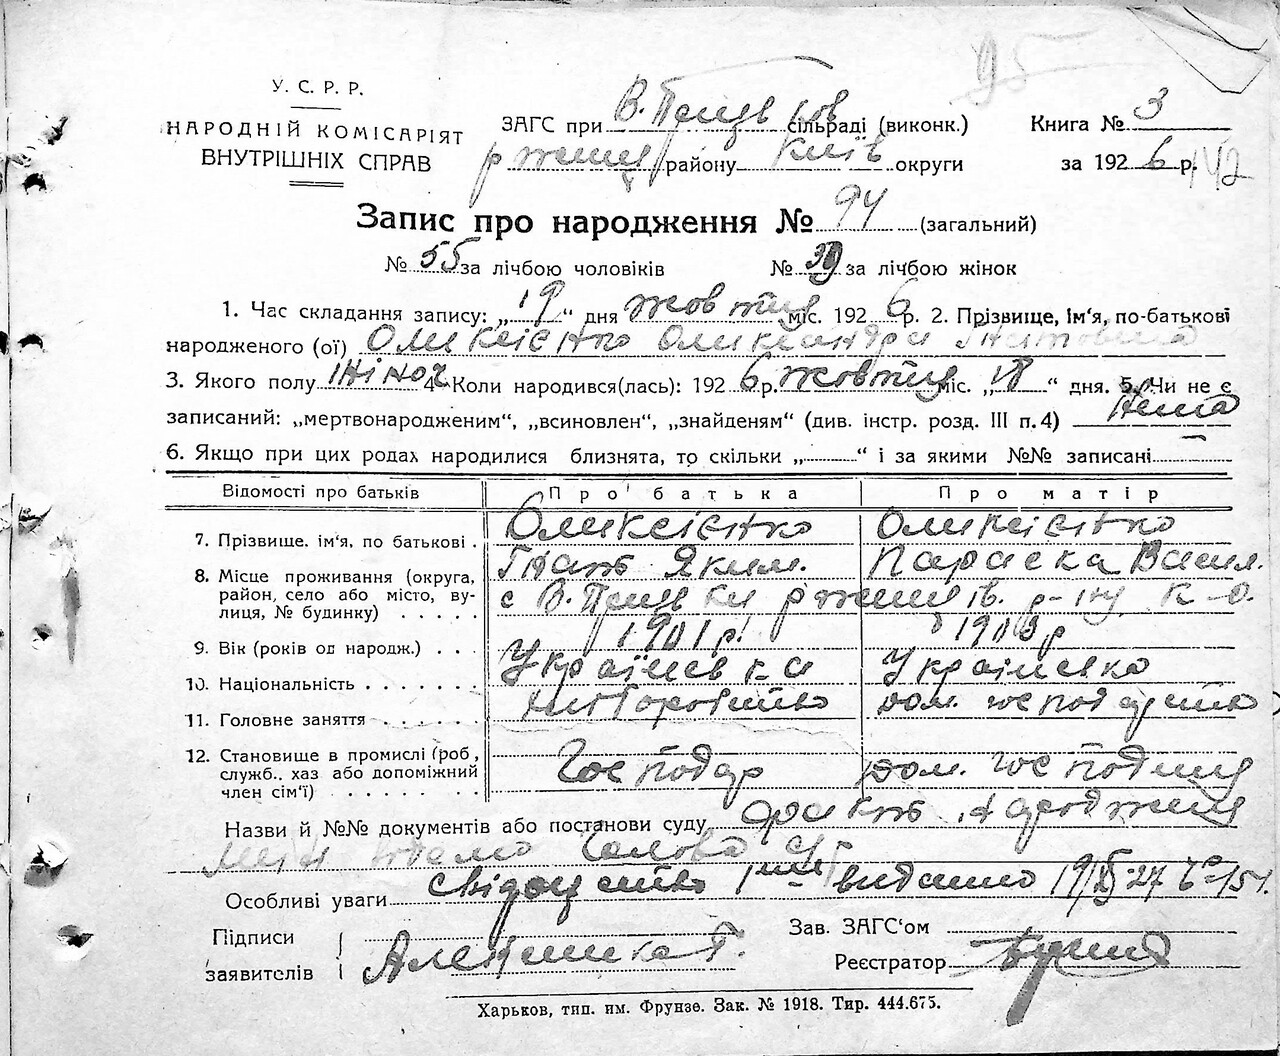 У. С. Р. Р.
НАРОДНІЙ КОМІСАРІЯТ
ВНУТРІШНІХ СПРАВ
ЗАГС при В. сільраді (виконк.)
району Київ округи
Книга № 3
за 1926 р.
Запис про народження № 94 (загальний)
№ 55 за лічбою чоловіків № 39 за лічбою жінок
1. Час складання запису: „19“ дня жовтня міс. 1926 р. 2. Прізвище, ім‘я, по-батькові
народженого (ої) Олексієнко Олександра Гнатовна
3. Якого полу жіноч 4. Коли народився(лась): 1926 р. жовтня міс. „18“ дня. 5. Чи не є
записаний: „мертвонародженим“, „всиновлен“, „знайденям“ (див. інстр. розд. III п. 4) Нема
6. Якщо при цих родах народилися близнята, то скільки „ “ і за якими №№ записані —
Відомості про батьків Про батька Про матір
7. Прізвище. ім‘я, по батькові . Олексієнко Гнат Яким. Олексієнко Параска Васил.
8. Місце проживання (округа, район, село або місто, вулиця, № будинку) . . . . . с В.
9. Вік (років од народж.) . . . 1901 р. 1903 р
10. Національність . . . . . . . Українець Українка
11. Головне заняття . . . . . . хліборобство дом. господарство
12. Становище в промислі (роб, служб.. хаз або допоміжний член сім‘ї) . . . . . . Господар дом. господиня
Назви й №№ документів або постанови суду
Особливі уваги свідоцтво видано
Підписи
заявителів
Зав. ЗАГС‘ом
Реєстратор
Харьков, тип. им. Фрунзе. Зак. № 1918. Тир. 444.675.